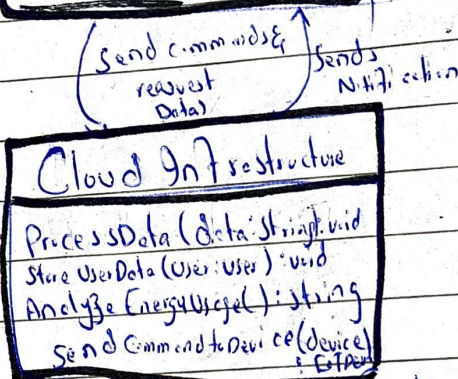 Send commands &
request
Data)
Sends
Notification
Cloud Infrastructure
ProcessData(data:string):void
Store UserData(User:user):void
Analyze EnergyUsage():string
Send CommandtoDevice(device)